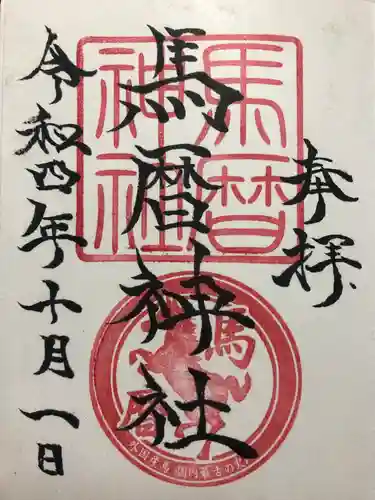 奉拝
馬暦神社
令和四年十月一日
馬暦
神社